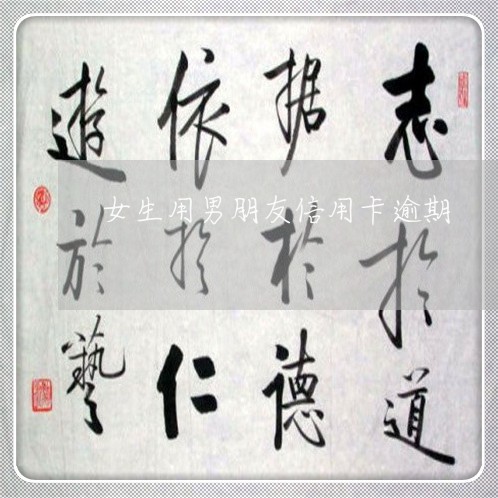 志於道
据於德
依於仁
遊於藝
女生用男朋友信用卡逾期